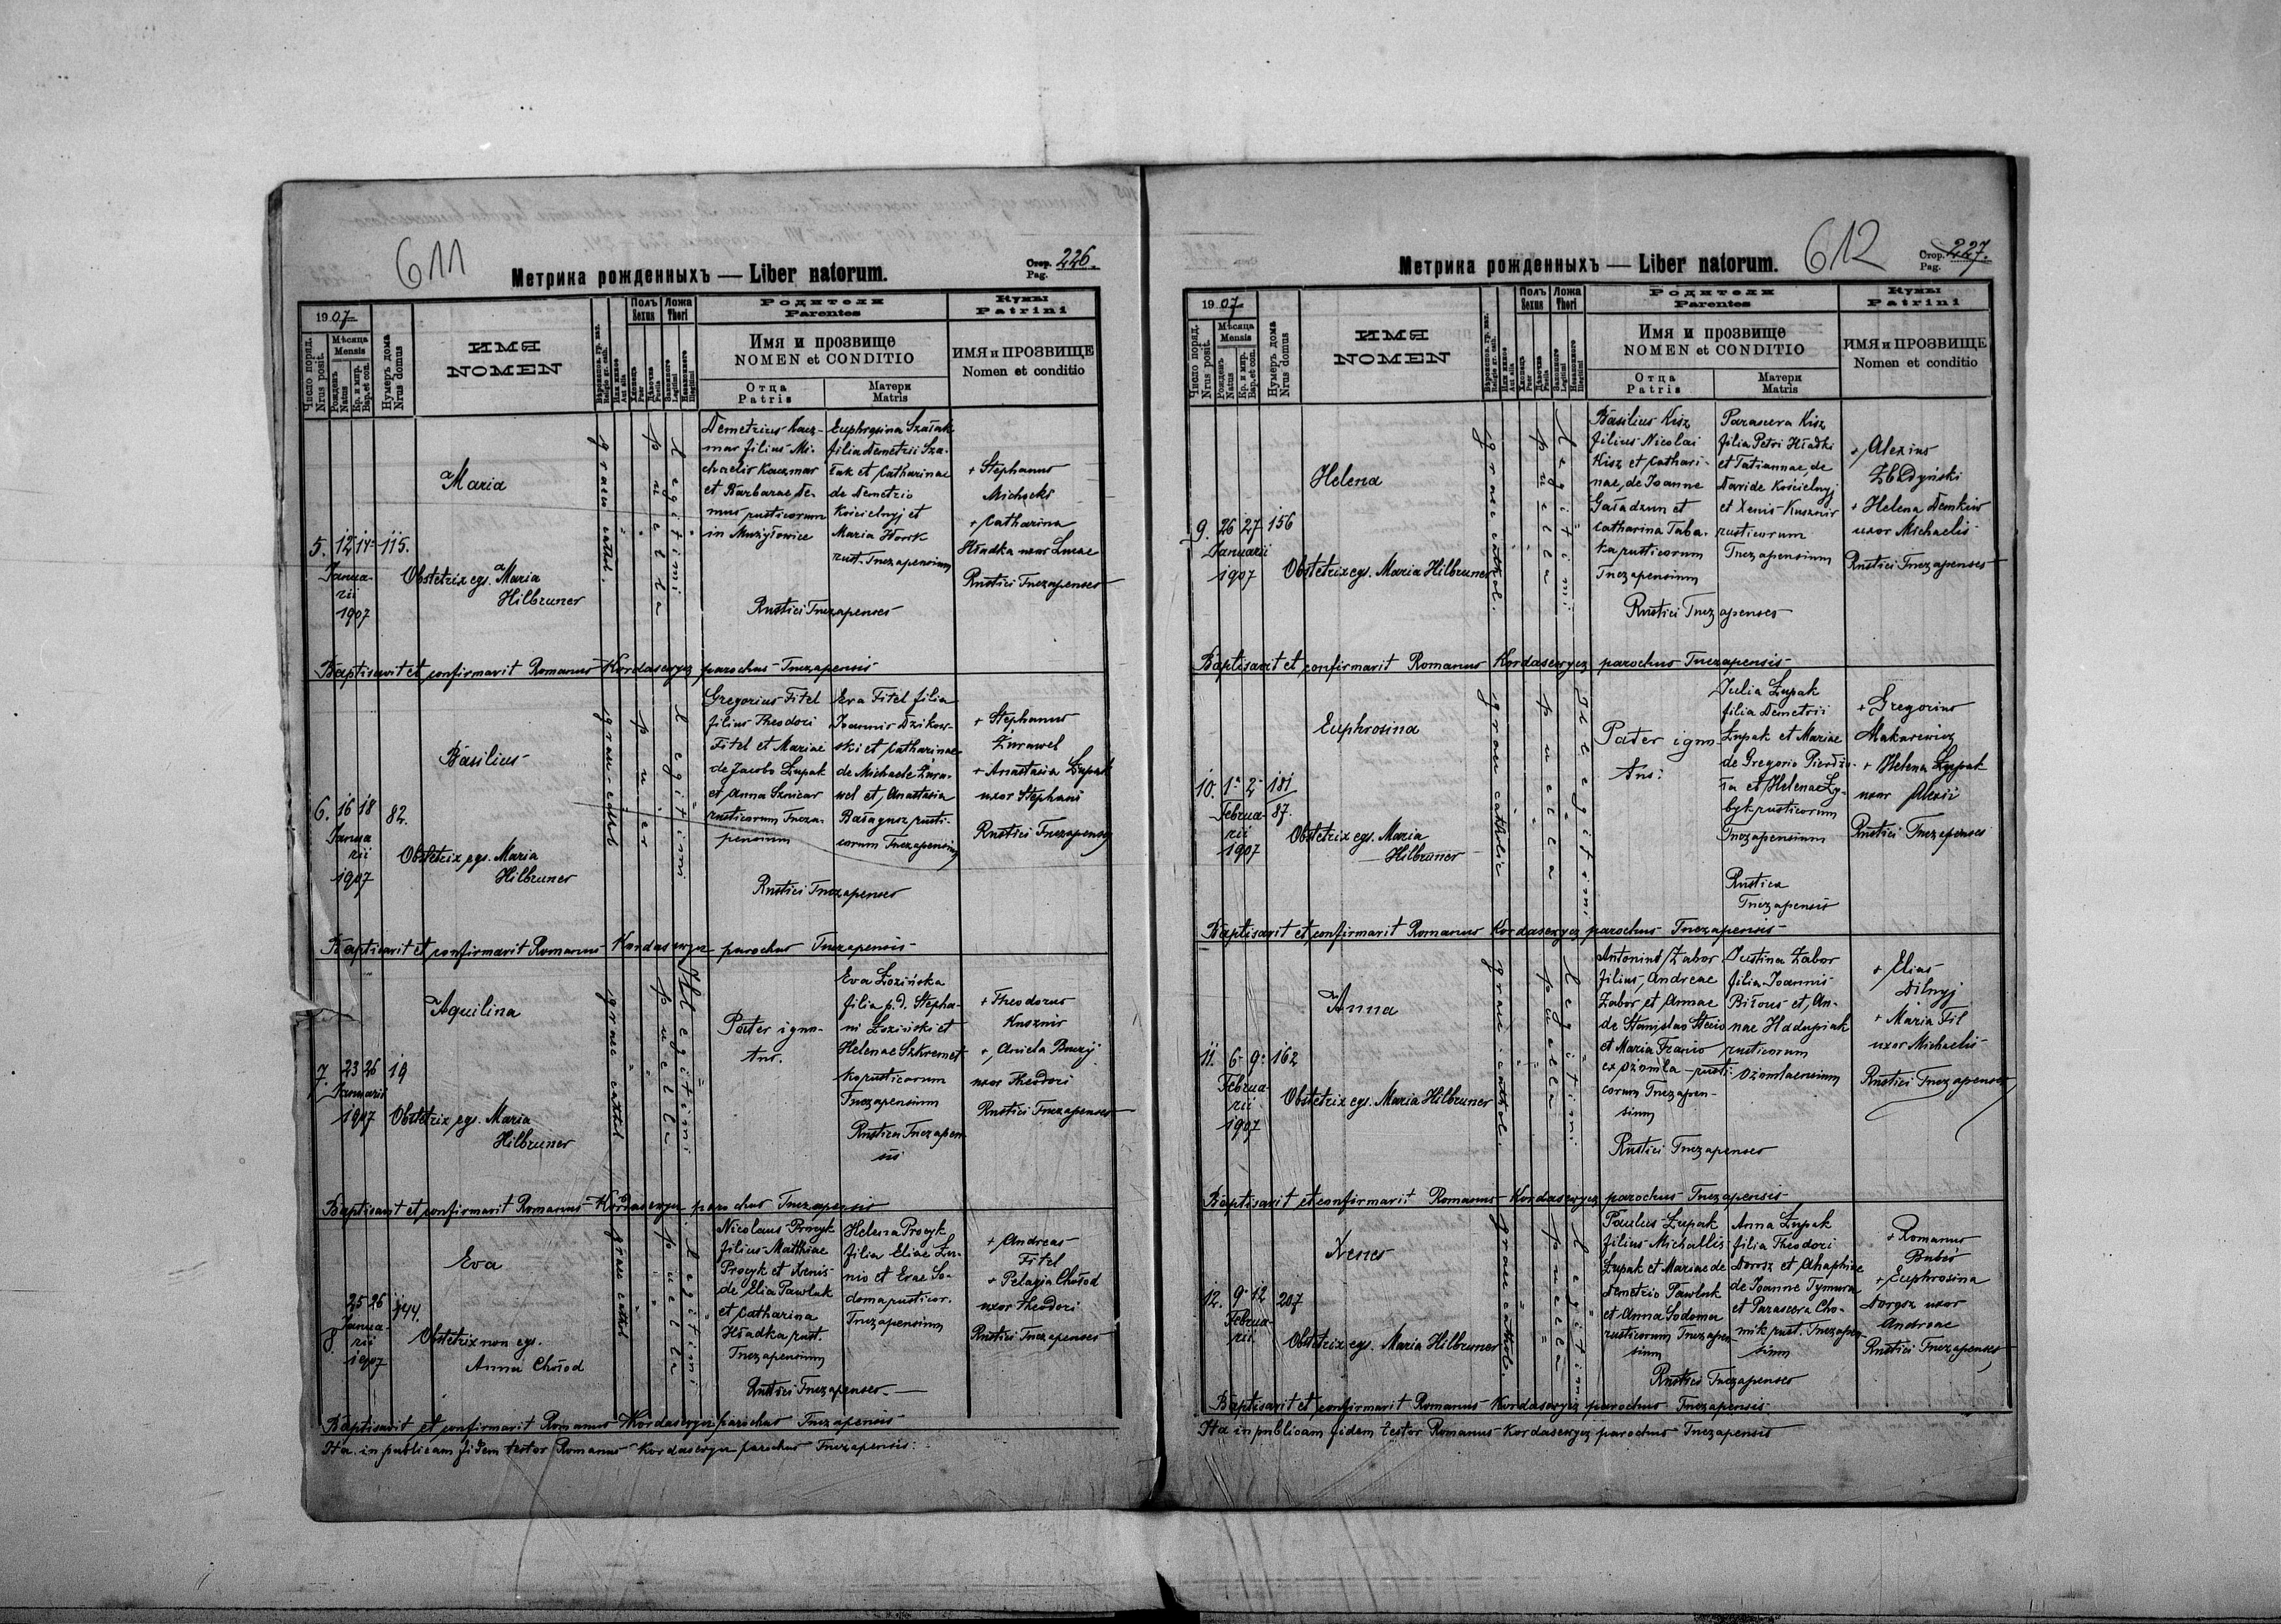 611
Метрика рожденныхъ — Liber natorum.
Стор. 226.
Pag.
1907
Число поряд.
Nrus posit.
Мѣсяца
Mensis
Рожденъ
Natus
Кр. и мир.
Bap. et con.
Нумеръ дома
Nrus domus
ИМЯ
NOMEN
Религiо gr. cath.
Aut alia
Полъ
Sexus
Puer
Puella
Ложа
Thori
Legitimi
Illegitimi
Родители
Parentes
Имя и прозвище
NOMEN et CONDITIO
Отца
Patris
Матери
Matris
Кумы
Patrini
ИМЯ и ПРОЗВИЩЕ
Nomen et conditio
5. 12 14 115.
Januarii
1907
Maria
Obstetrix egs. Maria
Hilbruner
graeco cathol.
puella
legitimi
Demetrius Kacz-
mar filius Mi-
chaelis Kaczmar
et Barbarae De-
mus rusticorum
in Mużyłowice
Euphrosina Szałak
filia Demetrii Sza-
łak et Catharinae
de Demetrio
Kościelnyj et
Maria Hork
rust. Tuczapensium
Rustici Tuczapenses
+ Stephanus
Michocki
+ Catharina
Hładka uxor Lucae
Rustici Tuczapenses
Baptisavit et confirmavit Romanus Kordasewycz parochus Tuczapensis
6. 16 18 82.
Janua
rii
1907
Basilius
Obstetrix egs. Maria
Hilbruner
graeco-cathol
puer
legitimi
Gregorius Fitel
filius Theodori
Fitel et Mariae
de Jacobo Łupak
et Anna Sznicar
rusticorum Tucza-
pensium
Eva Fitel filia
Joannis Dzikow-
ski et Catharinae
de Michaele Żura-
wel et Anastasia
Bałagusz rusti-
corum Tuczapensium
Rustici Tuczapenses
+ Stephanus
Żurawel
+ Anastasia Łupak
uxor Stephani
Rustici Tuczapenses
Baptisavit et confirmavit Romanus Kordasewycz parochus Tuczapensis
7. 23 26 19
Januarii
1907
Aquilina
Obstetrix egs. Maria
Hilbruner
graec cathol
puella
Illegitimi
Pater igno-
tus.
Eva Łozińska
filia p.d. Stepha-
ni Łoziński et
Helenae Szkremet-
ko rusticorum
Tuczapensium
Rustica Tuczapen
sis
+ Theodorus
Kusznir
+ Aniela Buczij
uxor Theodori
Rustici Tuczapenses
Baptisavit et confirmavit Romanus Kordasewycz parochus Tuczapensis
8. 25 26 144.
Janua-
rii
1907
Eva
Obstetrix non egs.
Anna Chołod
graec cathol
puella
legitimi
Nicolaus Procyk
filius Matthiae
Procyk et Xenis
de Elia Pawluk
et Catharina
Hładka rust.
Tuczapensium
Helena Procyk
filia Eliae Łu-
nio et Evae So-
doma rusticor.
Tuczapensium
Rustici Tuczapenses
+ Andreas
Fitel
+ Pelagia Chołod
uxor Theodori
Rustici Tuczapenses
Baptisavit et confirmavit Romanus Kordasewycz parochus Tuczapensis
Ita in publicam fidem testor Romanus Kordasewycz parochus Tuczapensis.
612
Метрика рожденныхъ — Liber natorum.
Стор. 227.
Pag.
1907
Число поряд.
Nrus posit.
Мѣсяца
Mensis
Рожденъ
Natus
Кр. и мир.
Bap. et con.
Нумеръ дома
Nrus domus
ИМЯ
NOMEN
Полъ
Sexus
Ложа
Thori
Родители
Parentes
Имя и прозвище
NOMEN et CONDITIO
Отца
Patris
Матери
Matris
Кумы
Patrini
ИМЯ и ПРОЗВИЩЕ
Nomen et conditio
9. 26 27 156
Januarii
1907
Helena
Obstetrix egs. Maria Hilbruner
graec cathol.
puella
legitimi
Basilius Kisz
filius Nicolai
Kisz et Cathari-
nae, de Joanne
Gaładzun et
Catharina Taba-
ka rusticorum
Tuczapensium
Parasceva Kisz
filia Petri Hładki
et Tatiannae, de
Davide Kościelnyj
et Xenis Kusznir
rusticorum
Tuczapensium
Rustici Tuczapenses
+ Alexius
Zbłdyński
+ Helena Demkiw
uxor Michaelis
Rustici Tuczapenses
Baptisavit et confirmavit Romanus Kordasewycz parochus Tuczapensis
10. 1 2 181/87.
Februa-
rii
1907
Euphrosina
Obstetrix egs. Maria
Hilbruner
graeco catholic
puella
Illegitimi
Pater igno-
tus.
Julia Łupak
filia Demetrii
Łupak et Mariae
de Gregorio Pierdzu-
ła et Helenae Zy-
byk rusticorum
Tuczapensium
Rustica
Tuczapensis
+ Gregorius
Makarewicz
+ Helena Łupak
uxor Alexii
Rustici Tuczapenses
Baptisavit et confirmavit Romanus Kordasewycz parochus Tuczapensis
11. 6 9 162
Februa-
rii
1907
Anna
Obstetrix egs. Maria Hilbruner
graec. cathol.
puella
legitimi
Antonius Zabor
filius Andreae
Zabor et Annae
de Stanislao Stecio
et Maria Franio
ex Ożomla rusti-
corum Tuczapen-
sium
Justina Zabor
filia Joannis
Biłous et An-
nae Hadupiak
rusticorum
Ożomlaensium
Rustici Tuczapenses
+ Elias
Dilnyj
+ Maria Fil
uxor Michaelis
Rustici Tuczapenses
Baptisavit et confirmavit Romanus Kordasewycz parochus Tuczapensis
12. 9 12 207
Februa-
rii
Xenes
Obstetrix egs. Maria Hilbruner
graec cathol.
puella
legitimi
Paulus Łupak
filius Michaelis
Łupak et Mariae de
Demetrio Pawluk
et Anna Sodoma
rusticorum Tuczapen-
sium
Anna Łupak
filia Theodori
Dorosz et Ahaphiae
de Joanne Tymura
et Parasceva Cho-
mik rust. Tuczapen-
sium
Rustici Tuczapenses
+ Romanus
Babiś
+ Euphrosina
Dorosz uxor
Andreae
Rustici Tuczapenses
Baptisavit et confirmavit Romanus Kordasewycz parochus Tuczapensis
Ita in publicam fidem testor Romanus Kordasewycz parochus Tuczapensis